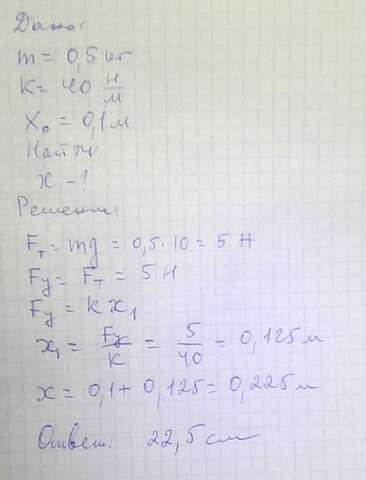 Дано:
m = 0,5 кг
K = 40 Н/м
X₀ = 0,1 м
Найти:
X - ?
Решение:
Fт = mg = 0,5 · 10 = 5 Н
Fу = Fт = 5 Н
Fу = K X₁
X₁ = Fу/K = 5/40 = 0,125 м
X = 0,1 + 0,125 = 0,225 м
Ответ: 22,5 см